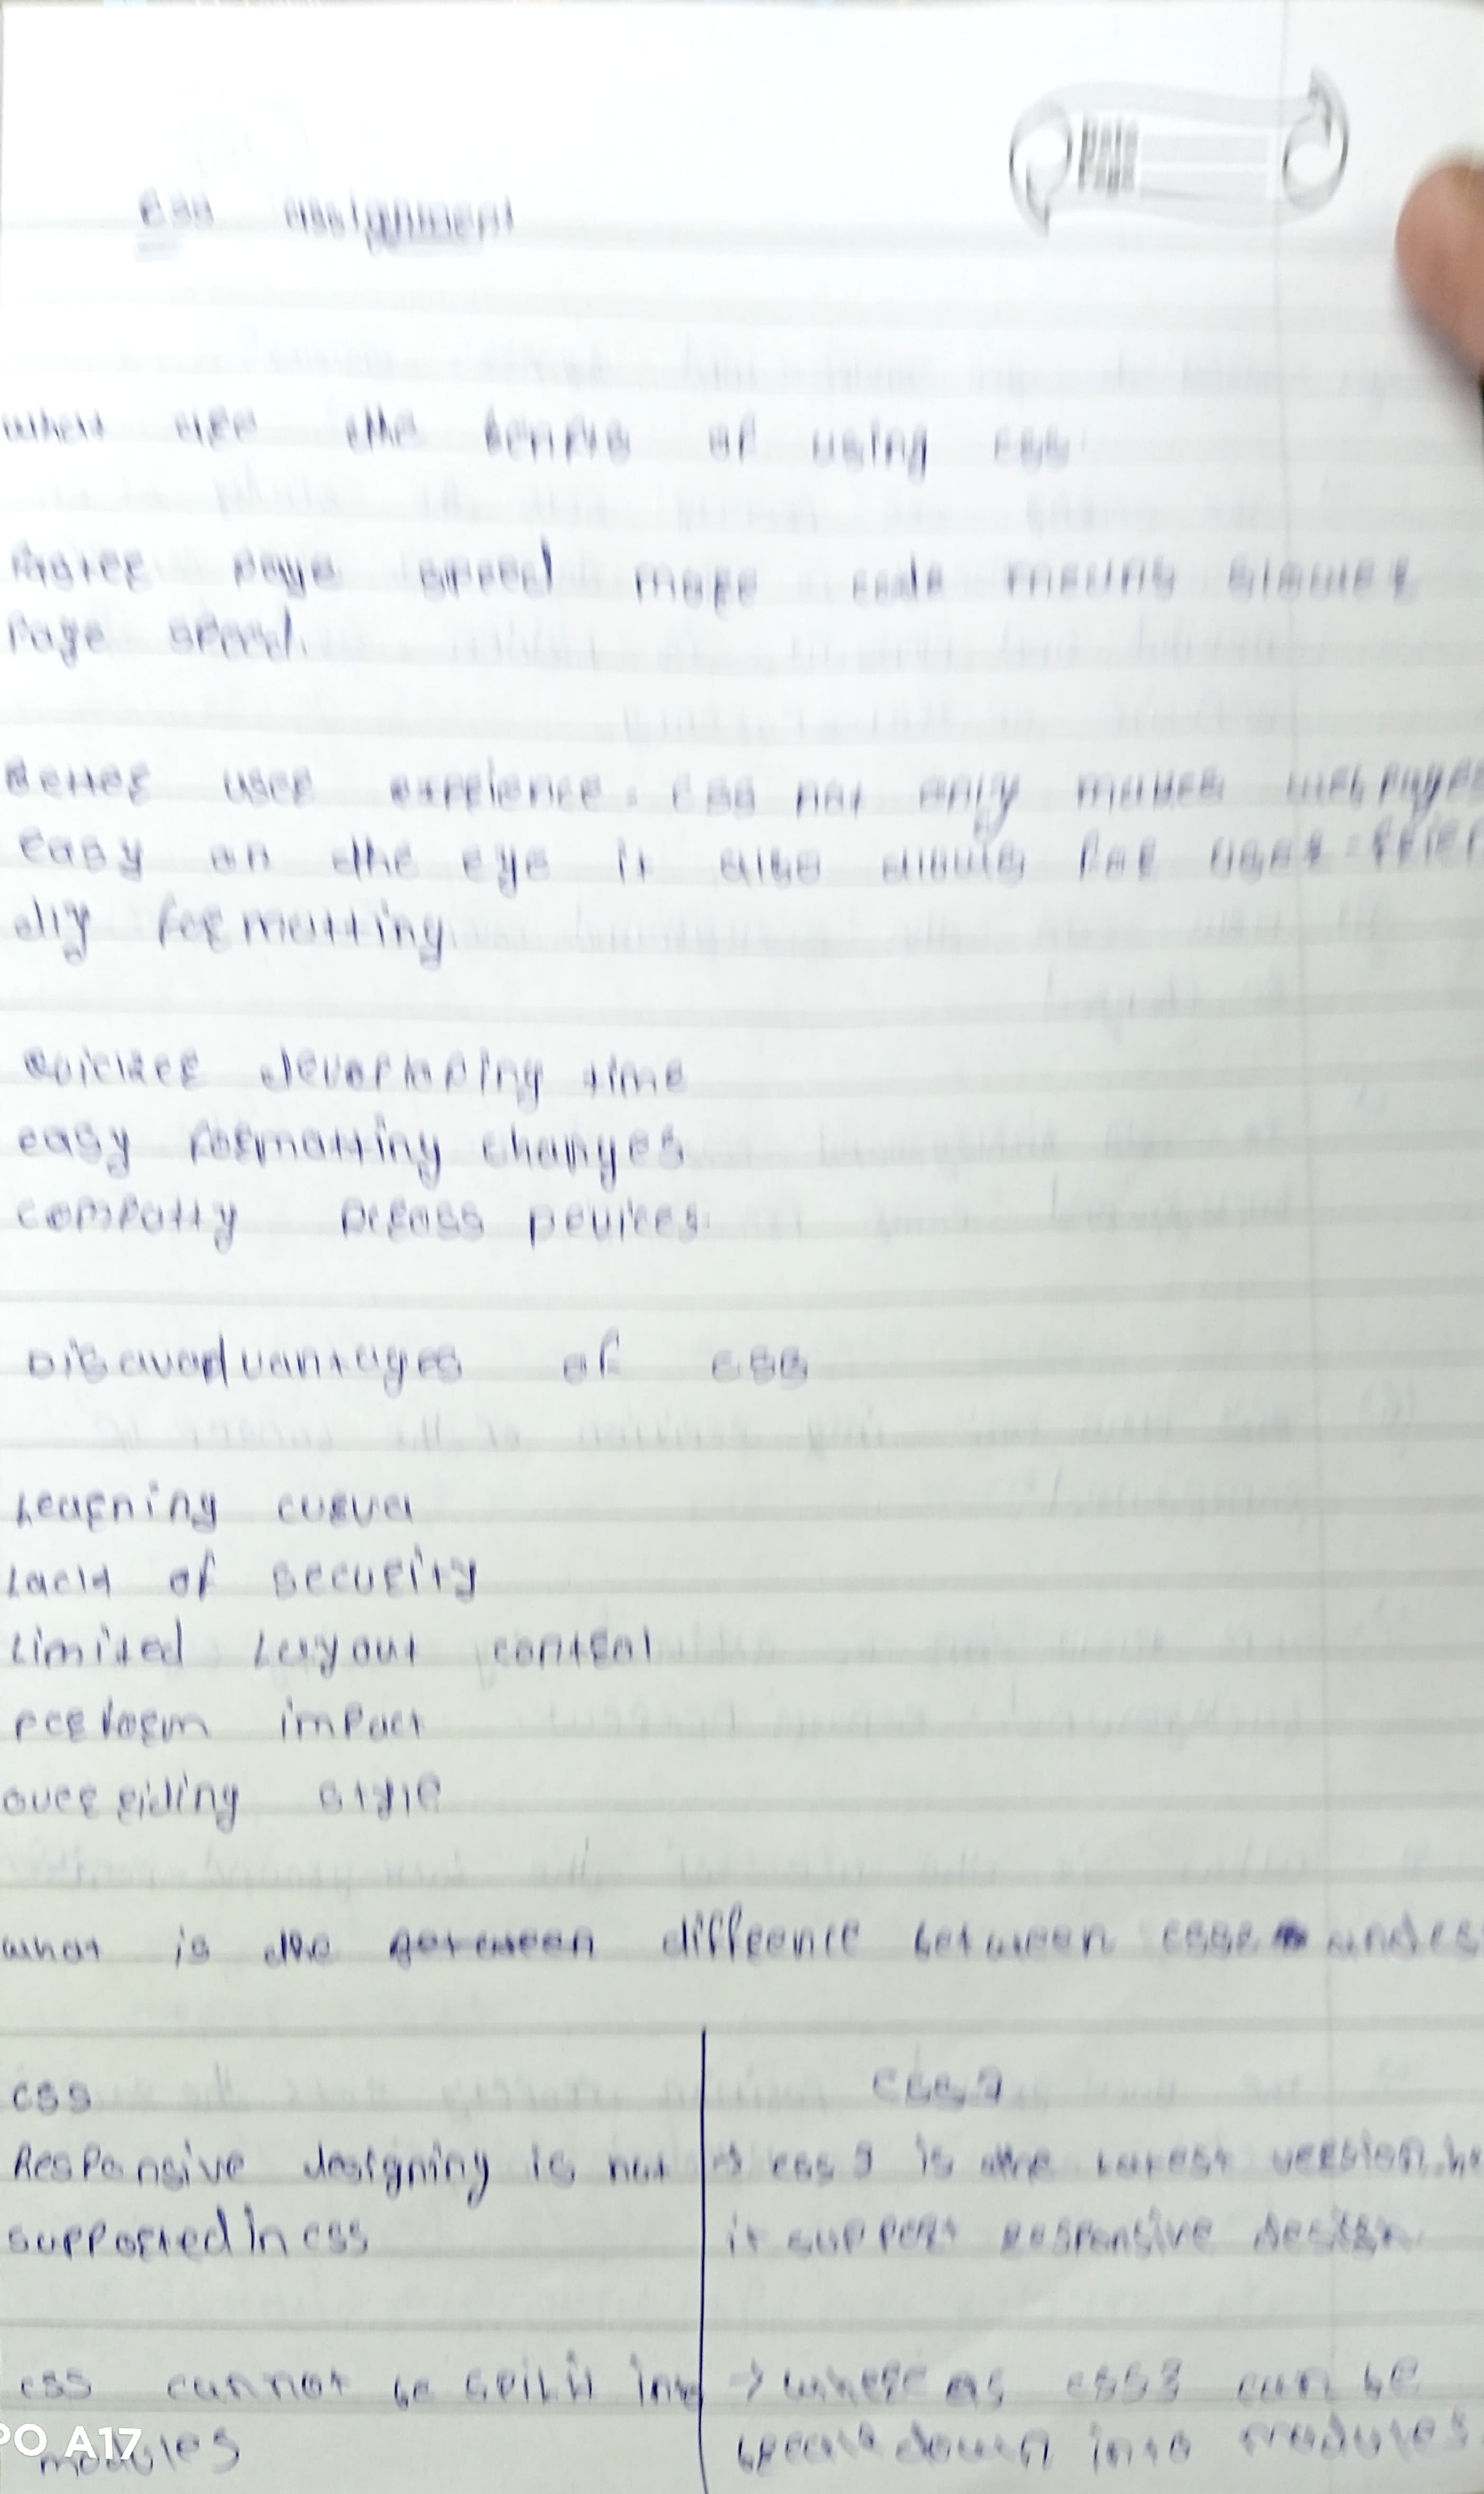 Date
Page
CSS Assignment
what are the benifis of using CSS
Faster page speed more code means slower
page speed.
Better user expeience: CSS not only makes web pages
easy on the eye it also allows for user-frien
dly formatting
Quicker deverloping time
easy formatting changes
compatty Across Devices
Disavadvantages of CSS
Learning curve
Lack of security
Limited Layout control
impact
overriding style
what is the between diffeence between
CSS
CSS3
Responsive designing is not
supported in CSS
→ CSS3 is the latest version
it support responsive design
CSS cannot be into
modules
→ where as CSS3 can be
break down into modules
A17